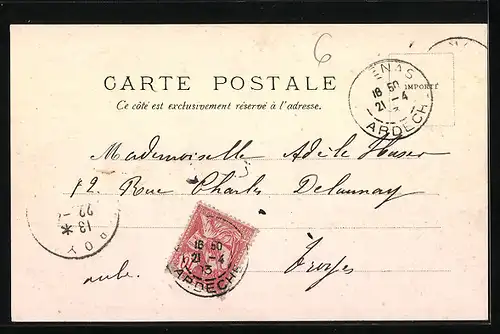 6
CARTE POSTALE
Ce côté est exclusivement réservé à l'adresse.
ENAS
18 50
21 - 4
ARDECHE
IMPORTÉ
Mademoiselle Adèle
12. Rue Charles Delaunay
aube. Troyes
22
18 *
18 50
21 - 4
ARDECHE